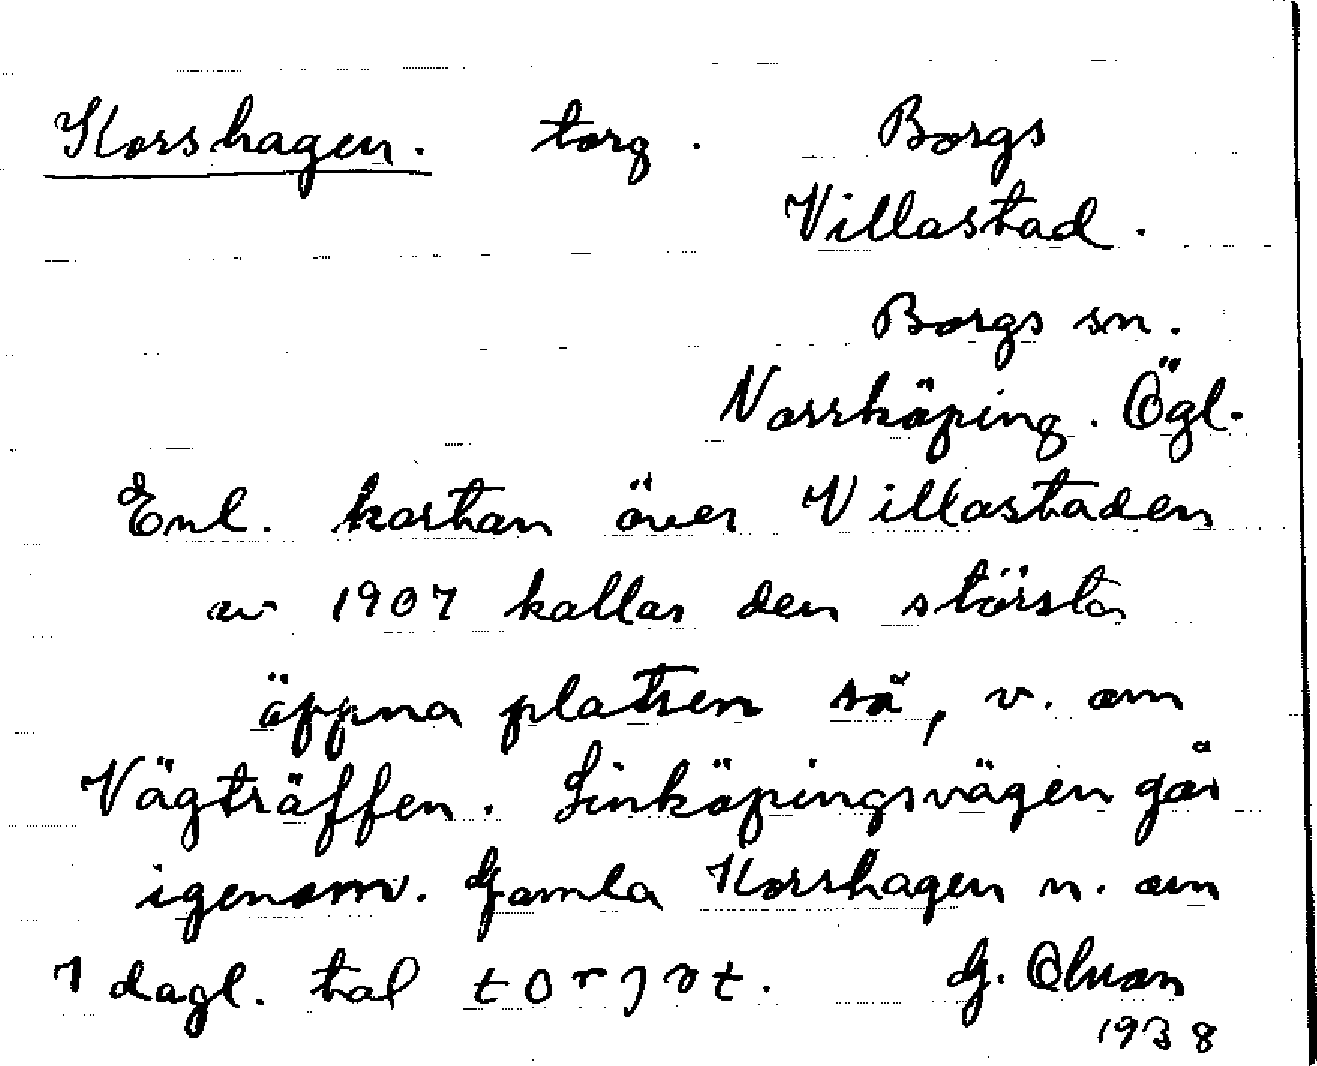 Korshagen. torg. Borgs
Villastad.
Borgs sn.
Norrköping. Ögl.
Enl. kartan över Villastaden
av 1907 kallas den största
öppna platsen så, v. om
Vägträffen. Linköpingsvägen går
igenom. Gamla Korshagen n. om
I dagl. tal torjət. G.
1938